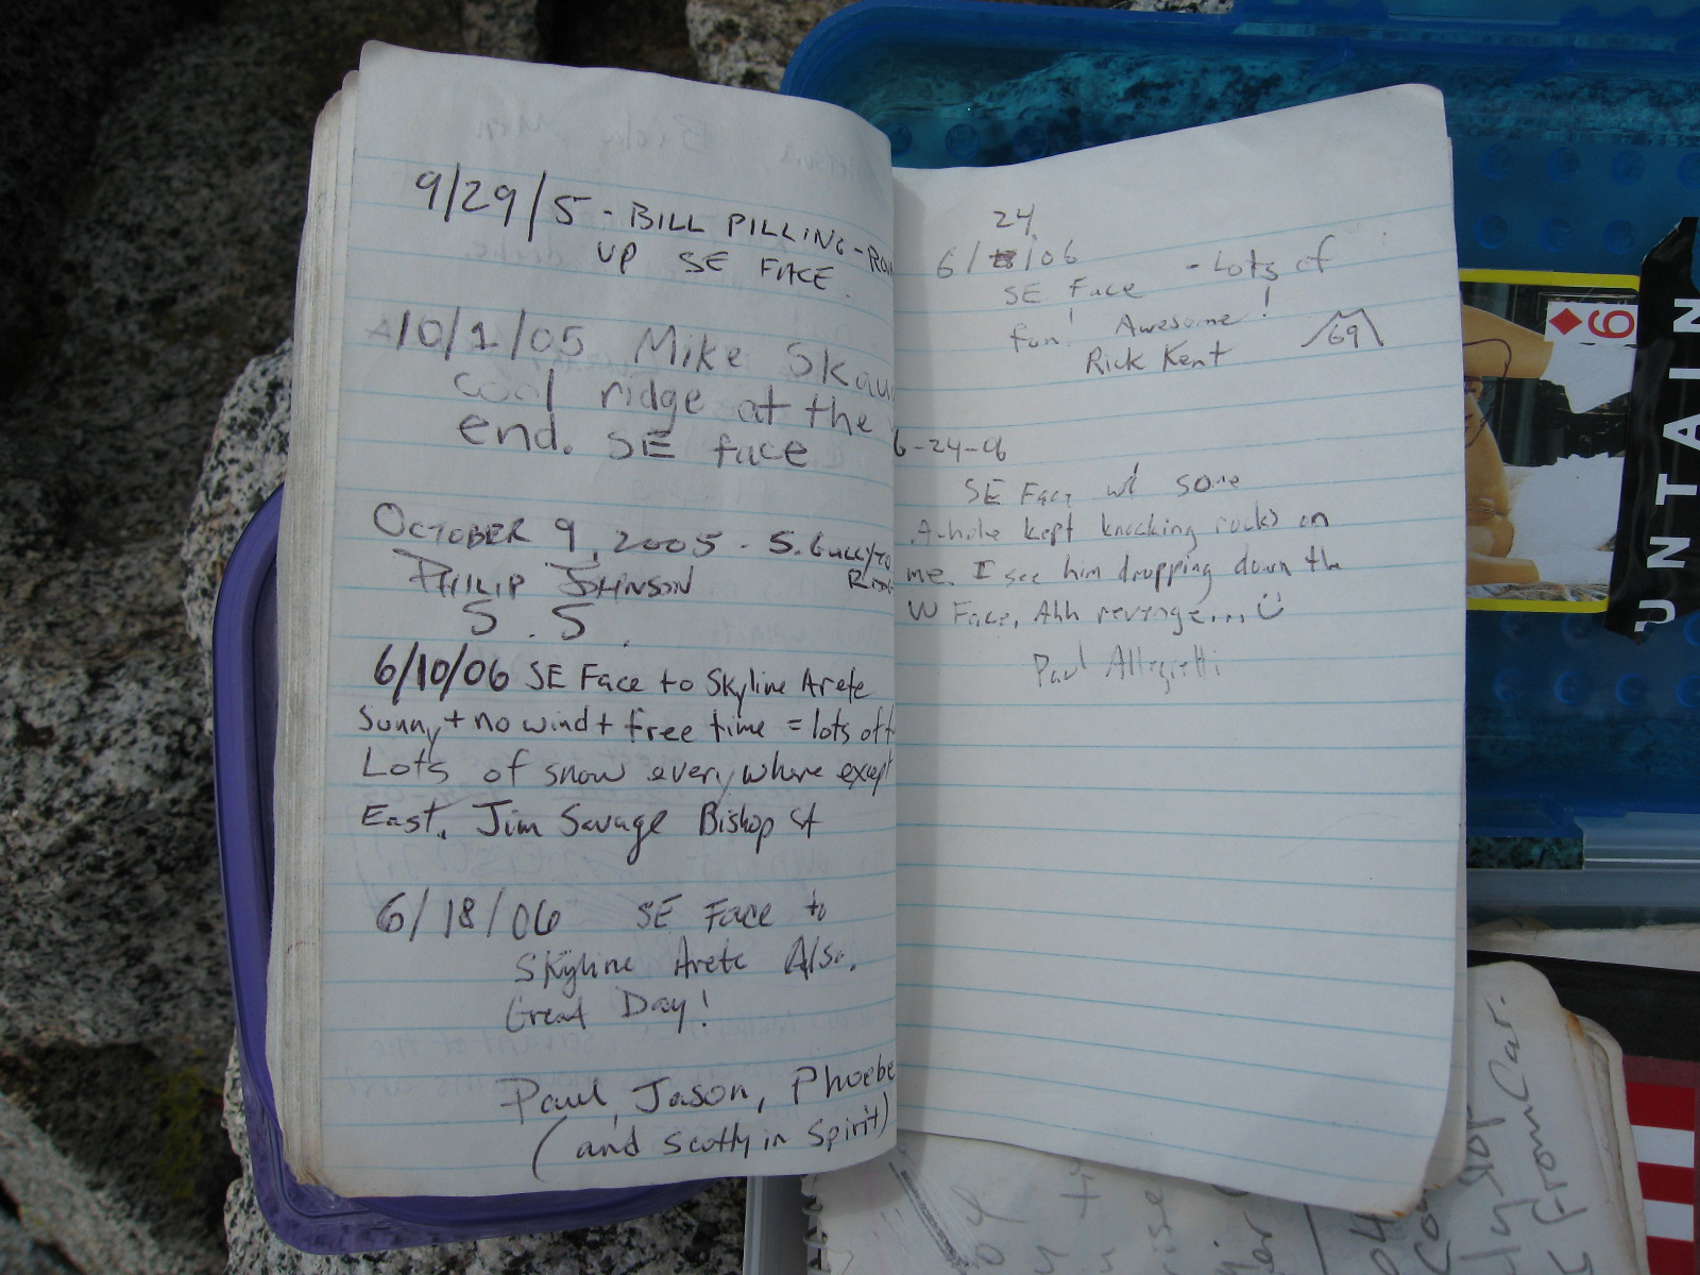 9/29/5 - BILL PILLING -
UP SE FACE.
10/1/05 Mike
cool ridge at the
end. SE face
OCTOBER 9, 2005 - S. GULLY TO
PHILIP JOHNSON
5.5.
6/10/06 SE Face to Skyline Arete
Sunny + no wind + free time = lots of
Lots of snow everywhere except
East. Jim Savage Bishop CA
6/18/06 SE Face to
Skyline Arete Also.
Great Day!
Paul, Jason, Phoebe
(and Scotty in Spirit)
24
6/ /06 - Lots of
SE Face
fun! Awesome!
Rick Kent 69
6-24-06
SE Face w/ some
A-hole kept knocking rocks on
me. I see him dropping down the
W Face. Ahh revenge... :)
Paul Allegretti
6
UNTAIN
from Car.